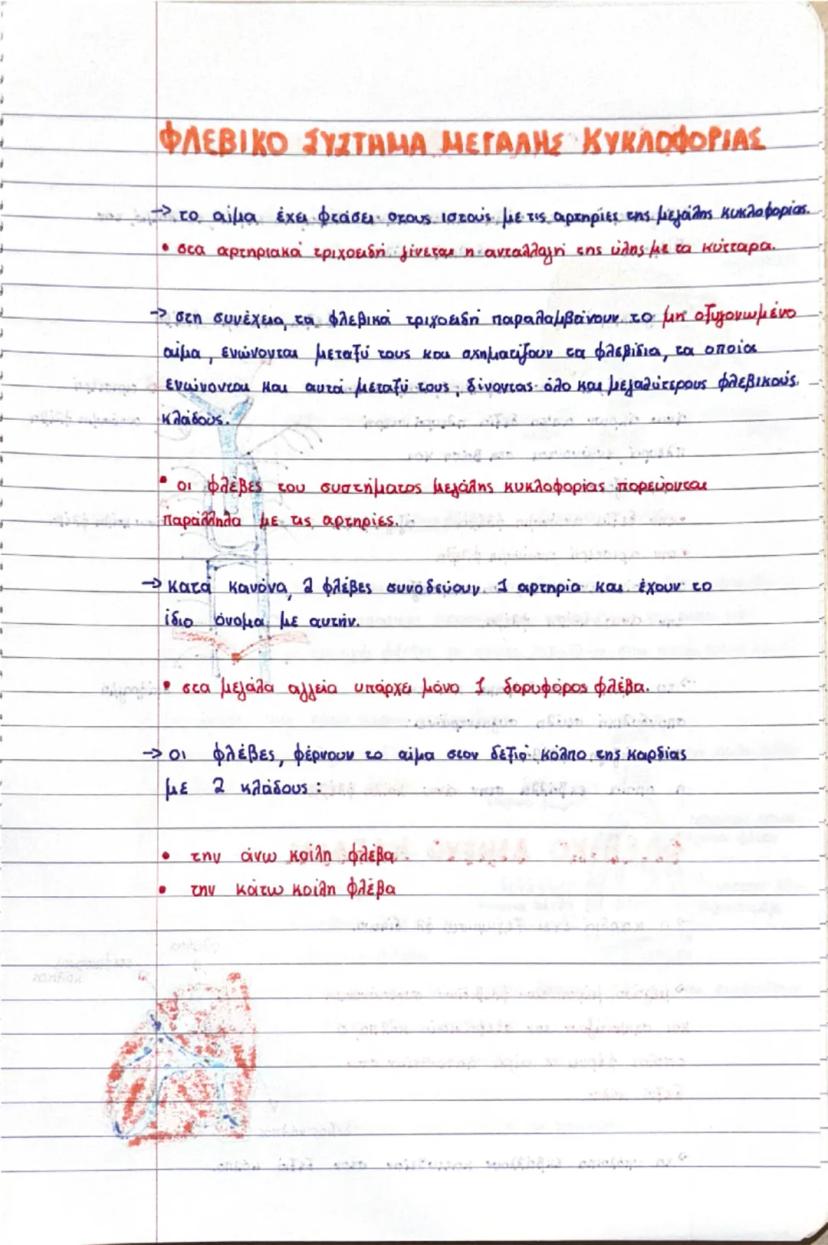 ΦΛΕΒΙΚΟ ΣΥΣΤΗΜΑ ΜΕΓΑΛΗΣ ΚΥΚΛΟΦΟΡΙΑΣ
→ το αίμα έχει φτάσει στους ιστούς με τις αρτηρίες της μεγάλης κυκλοφορίας.
• στα αρτηριακά τριχοειδή γίνεται η ανταλλαγή της ύλης με τα κύτταρα.
→ στη συνέχεια, τα φλεβικά τριχοειδή παραλαμβάνουν το μη οξυγονωμένο
αίμα, ενώνονται μεταξύ τους και σχηματίζουν τα φλεβίδια, τα οποία
ενώνονται και αυτά μεταξύ τους, δίνοντας όλο και μεγαλύτερους φλεβικούς
κλάδους.
• οι φλέβες του συστήματος μεγάλης κυκλοφορίας πορεύονται
παράλληλα με τις αρτηρίες.
→ κατά κανόνα, 2 φλέβες συνοδεύουν 1 αρτηρία και έχουν το
ίδιο όνομα με αυτήν.
• στα μεγάλα αγγεία υπάρχει μόνο 1 δορυφόρος φλέβα.
→ οι φλέβες, φέρνουν το αίμα στον δεξιό κόλπο της καρδίας
με 2 κλάδους:
• την άνω κοίλη φλέβα
• την κάτω κοίλη φλέβα